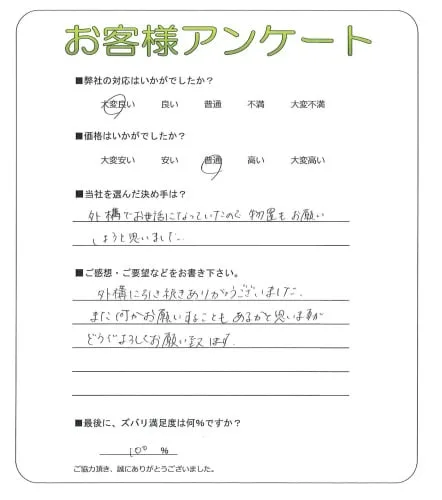 お客様アンケート
■弊社の対応はいかがでしたか？
大変良い 良い 普通 不満 大変不満
■価格はいかがでしたか？
大変安い 安い 普通 高い 大変高い
■当社を選んだ決め手は？
外構でお世話になっていたので 物置もお願い
しようと思いました.
■ご感想・ご要望などをお書き下さい。
外構に引き続きありがとうございました.
また何かお願いすることもあるかと思いますが
どうぞよろしくお願い致します.
■最後に、ズバリ満足度は何％ですか？
100 ％
ご協力頂き、誠にありがとうございました。